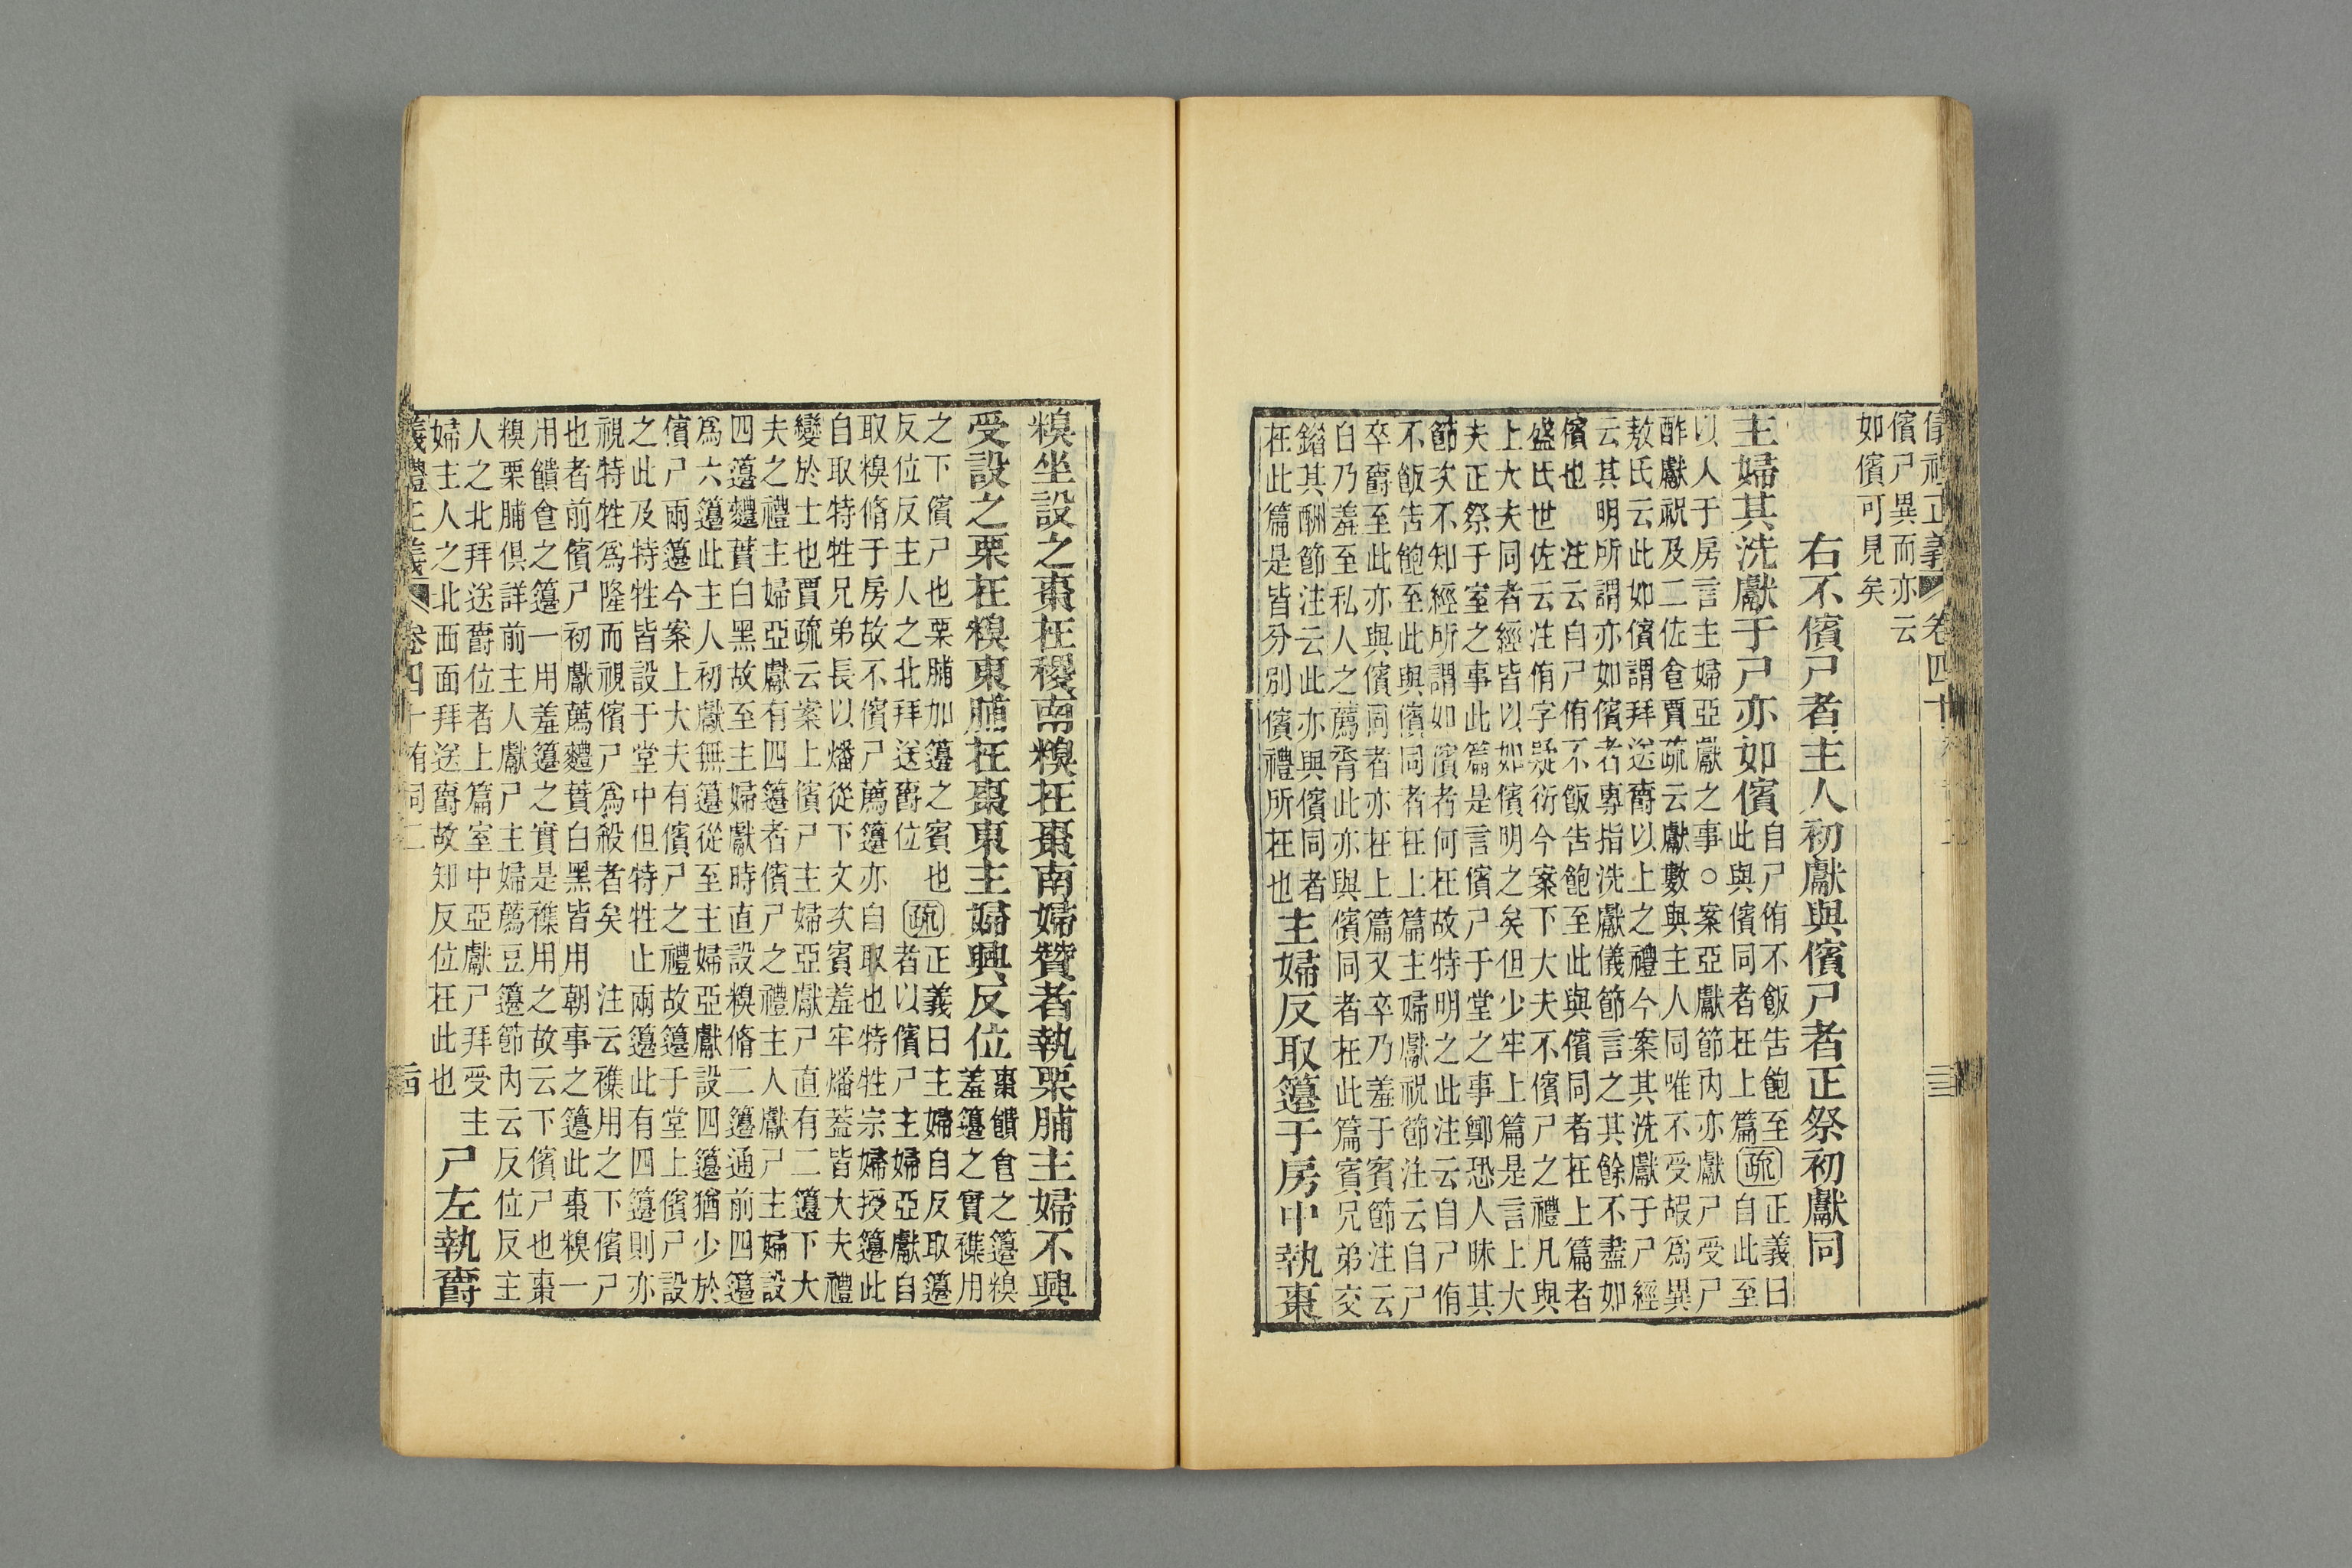 儐尸異而亦云
如儐可見矣
右不儐尸者主人初獻與儐尸者正祭初獻同
主婦其洗獻于尸亦如儐
自尸侑不飯告飽至
此與儐同者在上篇
疏
正義曰
自此至
以人于房言主婦亞獻之事○案亞獻節內亦獻尸受尸
酢獻祝及二佐食賈疏云獻數與主人同唯不受嘏爲異
敖氏云此如儐謂拜送爵以上之禮今案其洗獻于尸經
云其明所謂亦如儐者專指洗獻儀節言之其餘不盡如
儐也 注云自尸侑不飯告飽至此與儐同者在上篇者
盛氏世佐云注侑字疑衍今案下大夫不儐尸之禮凡與
上大夫同者經皆以如儐明之矣但少牢上篇是言上大
夫正祭于室之事此篇是言儐尸于堂之事鄭恐人昧其
節次不知經所謂如儐者何在故特明之此注云自尸侑
不飯告飽至此與儐同者在上篇主婦獻祝節注云自尸
卒爵至此亦與儐同者亦在上篇又卒乃羞于賓節注云
自乃羞至私人之薦脀此亦與儐同者在此篇賓兄弟交
錯其酬節注云此亦與儐同者
在此篇是皆分別儐禮所在也
主婦反取籩于房中執棗
糗坐設之棗在稷南糗在棗南婦贊者執栗脯主婦不興
受設之栗在糗東脯在棗東主婦興反位
棗饋食之籩糗
羞籩之實襍用
之下儐尸也栗脯加籩之實也
反位反主人之北拜送爵位
疏
正義曰主婦自反取籩
者以儐尸主婦亞獻自
取糗脩于房故不儐尸薦籩亦自取也特牲宗婦授籩此
自取特牲兄弟長以燔從下文次賓羞牢燔蓋皆大夫禮
變於士也賈疏云案上儐尸主婦亞獻尸直有二籩下大
夫之禮主婦亞獻有四籩者儐尸之禮主人獻尸主婦設
四籩麷蕡白黑故至主婦獻時直設糗脩二籩通前四籩
爲六籩此主人初獻無籩從至主婦亞獻設四籩猶少於
儐尸兩籩今案上大夫有儐尸之禮故籩于堂上儐尸設
之此及特牲皆設于堂中但特牲止兩籩此有四籩則亦
視特牲爲隆而視儐尸爲殺者矣 注云襍用之下儐尸
也者前儐尸初獻薦麷蕡白黑皆用朝事之籩此棗糗一
用饋食之籩一用羞籩之實是襍用之故云下儐尸也棗
糗栗脯俱詳前主人獻尸主婦薦豆籩節內云反位反主
人之北拜送爵位者上篇室中亞獻尸拜受主
婦主人之北西面拜送爵故知反位在此也
尸左執爵
儀禮正義 卷四十